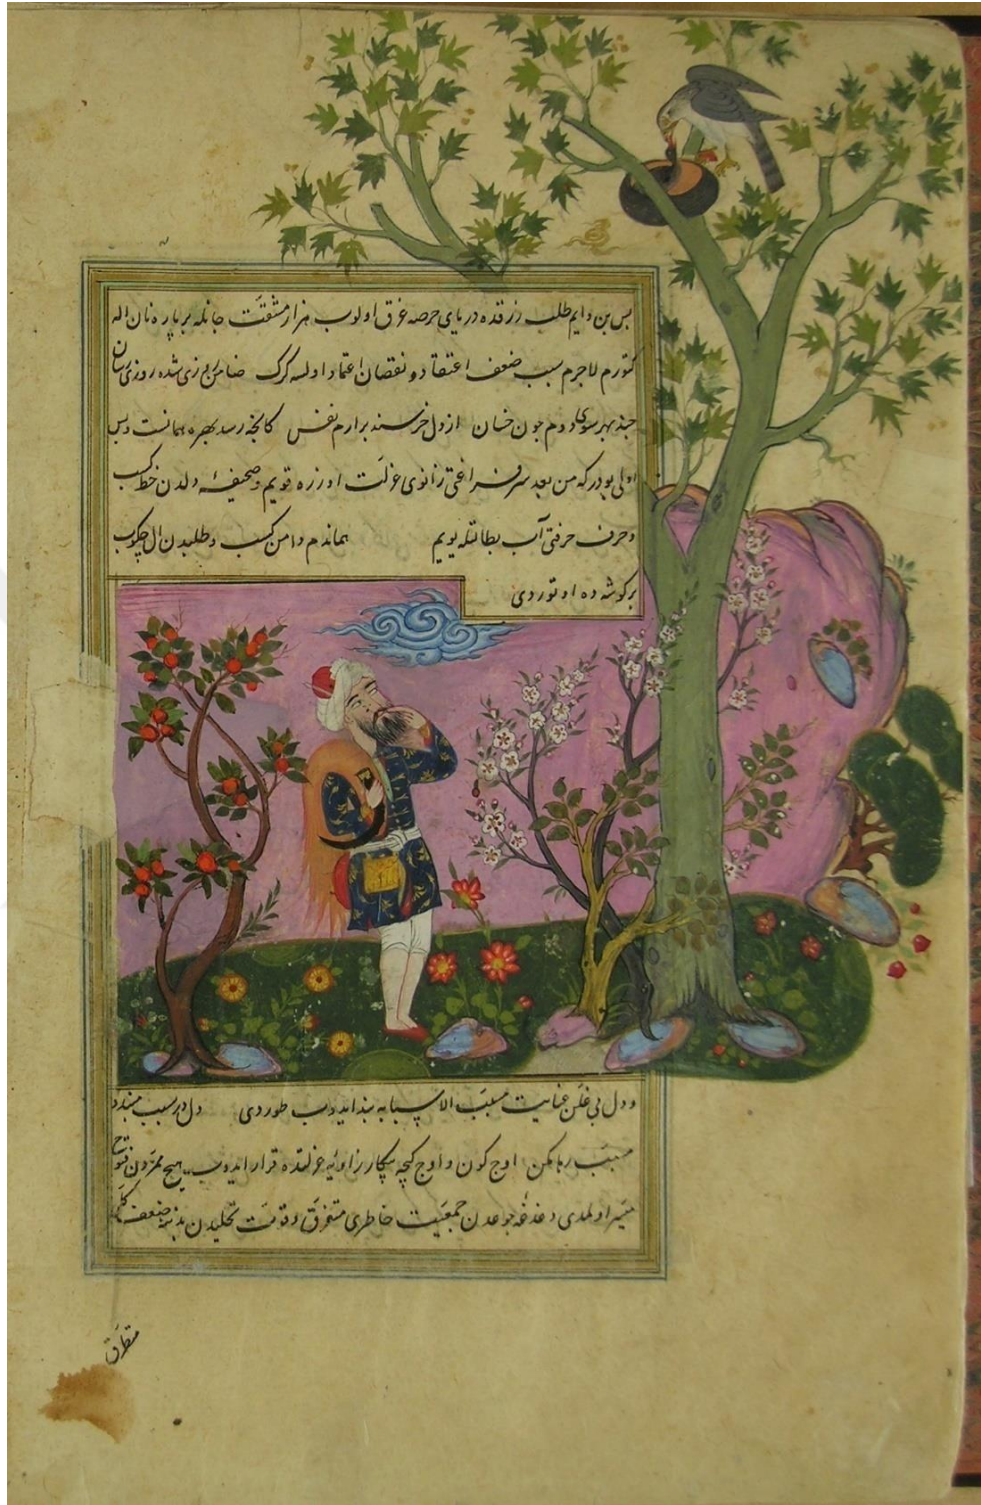 بس بن دایم طلب رزقده دریای حرصه غرق اولوب هزار مشقت جانله بر پاره نان اله
کتورم لاجرم سبب ضعف اعتقاد و نقصان اعتماد اولسه کرک ضامن روزی شده روزی رسان
چند بهر سوی دوم چون خسان از دل خرسند برارم نفس کانچه رسد بهره همانست و بس
اولی بودر که من بعد سر فراغتی زانوی عزلت اوزره قویم و صحیفهٔ دلدن خط کسب
و حرف حرفتی آب بطالتله یویم بماندم دامن کسب و طلبدن ال چکوب
بر کوشه ده اوتوردی
و دل بی غلّن عنایت مسبب الاسبابه بند ایدوب طوردی دل در سبب مبند
مسبب رها مکن اوچ کون و اوچ کیجه بیکار زاویهٔ عزلتده قرار ایدوب هیچ ممردن فتوح
میسر اولمدی دغدغهٔ جوعدن جمعیت خاطری متفرق و قوت تحلیدن ضعف
متطرق